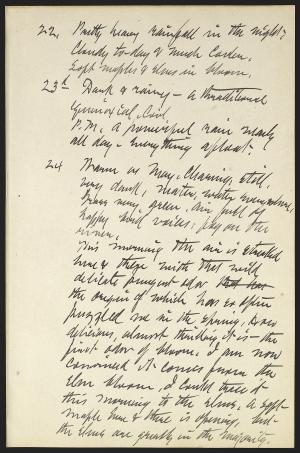 22. Pretty heavy rainfall in the night;
Cloudy to-day & much
Soft maples & elms in bloom.
23d Dark & rainy - a traditional
Equinoxial
P.M. A powerful rain nearly
all day - Everything afloat.
24 Warm as May. Clearing, still,
very dank, water, water everywhere,
Grass very green, air full of
happy bird voices; fog on the
river.
This morning the air is streaked
here & there with that wild
delicate pungent odor
the origin of which has so often
puzzled me in the spring,
delicious, almost thrilling it is - the
first odor of bloom. I am now
convinced it comes from the
elm bloom, I could trace it
this morning to the elms. A soft-
maple here & there is opening, but
the elms are greatly in the majority.